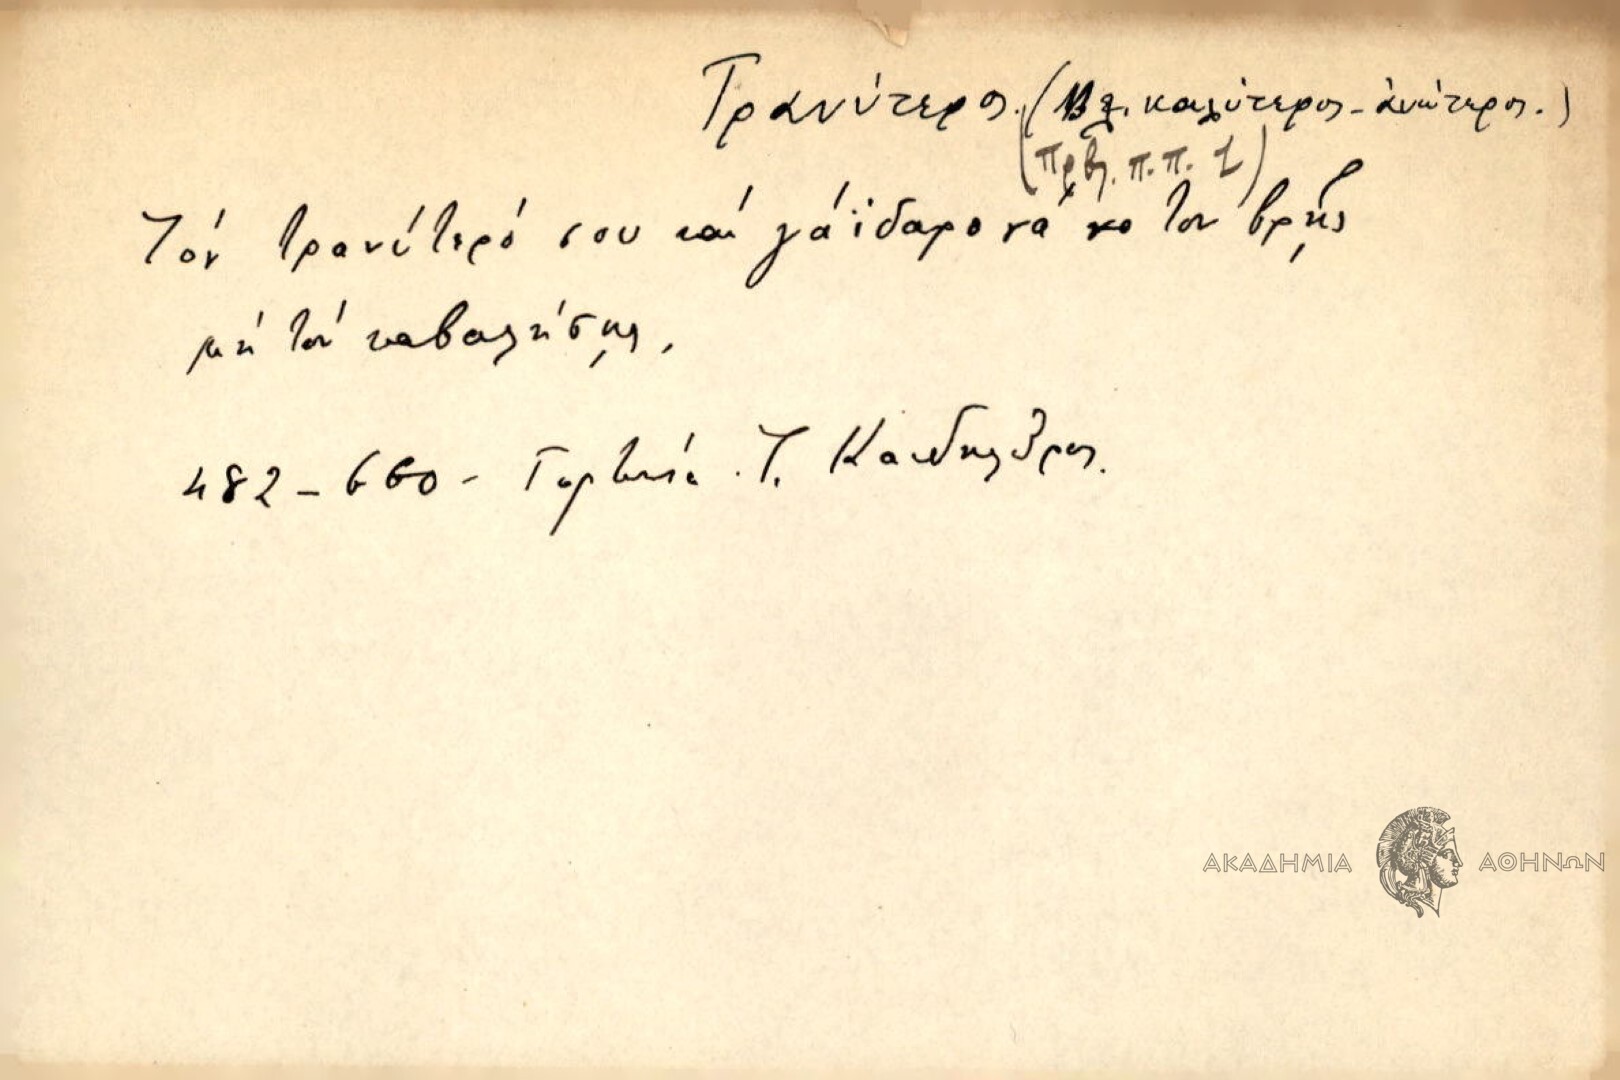 Τρανύτερος. (Βλ. καλύτερος - ἀνώτερος.)
(πρβλ. π.π. 1)
Τόν τρανύτερό σου καί γάϊδαρο νά τον βρῇς
μή τόν καβαλήσῃς,
482 - 660 - Γορτυνία Τ. Κανδηλῶρος.
ΑΚΑΔΗΜΙΑ ΑΘΗΝΩΝ